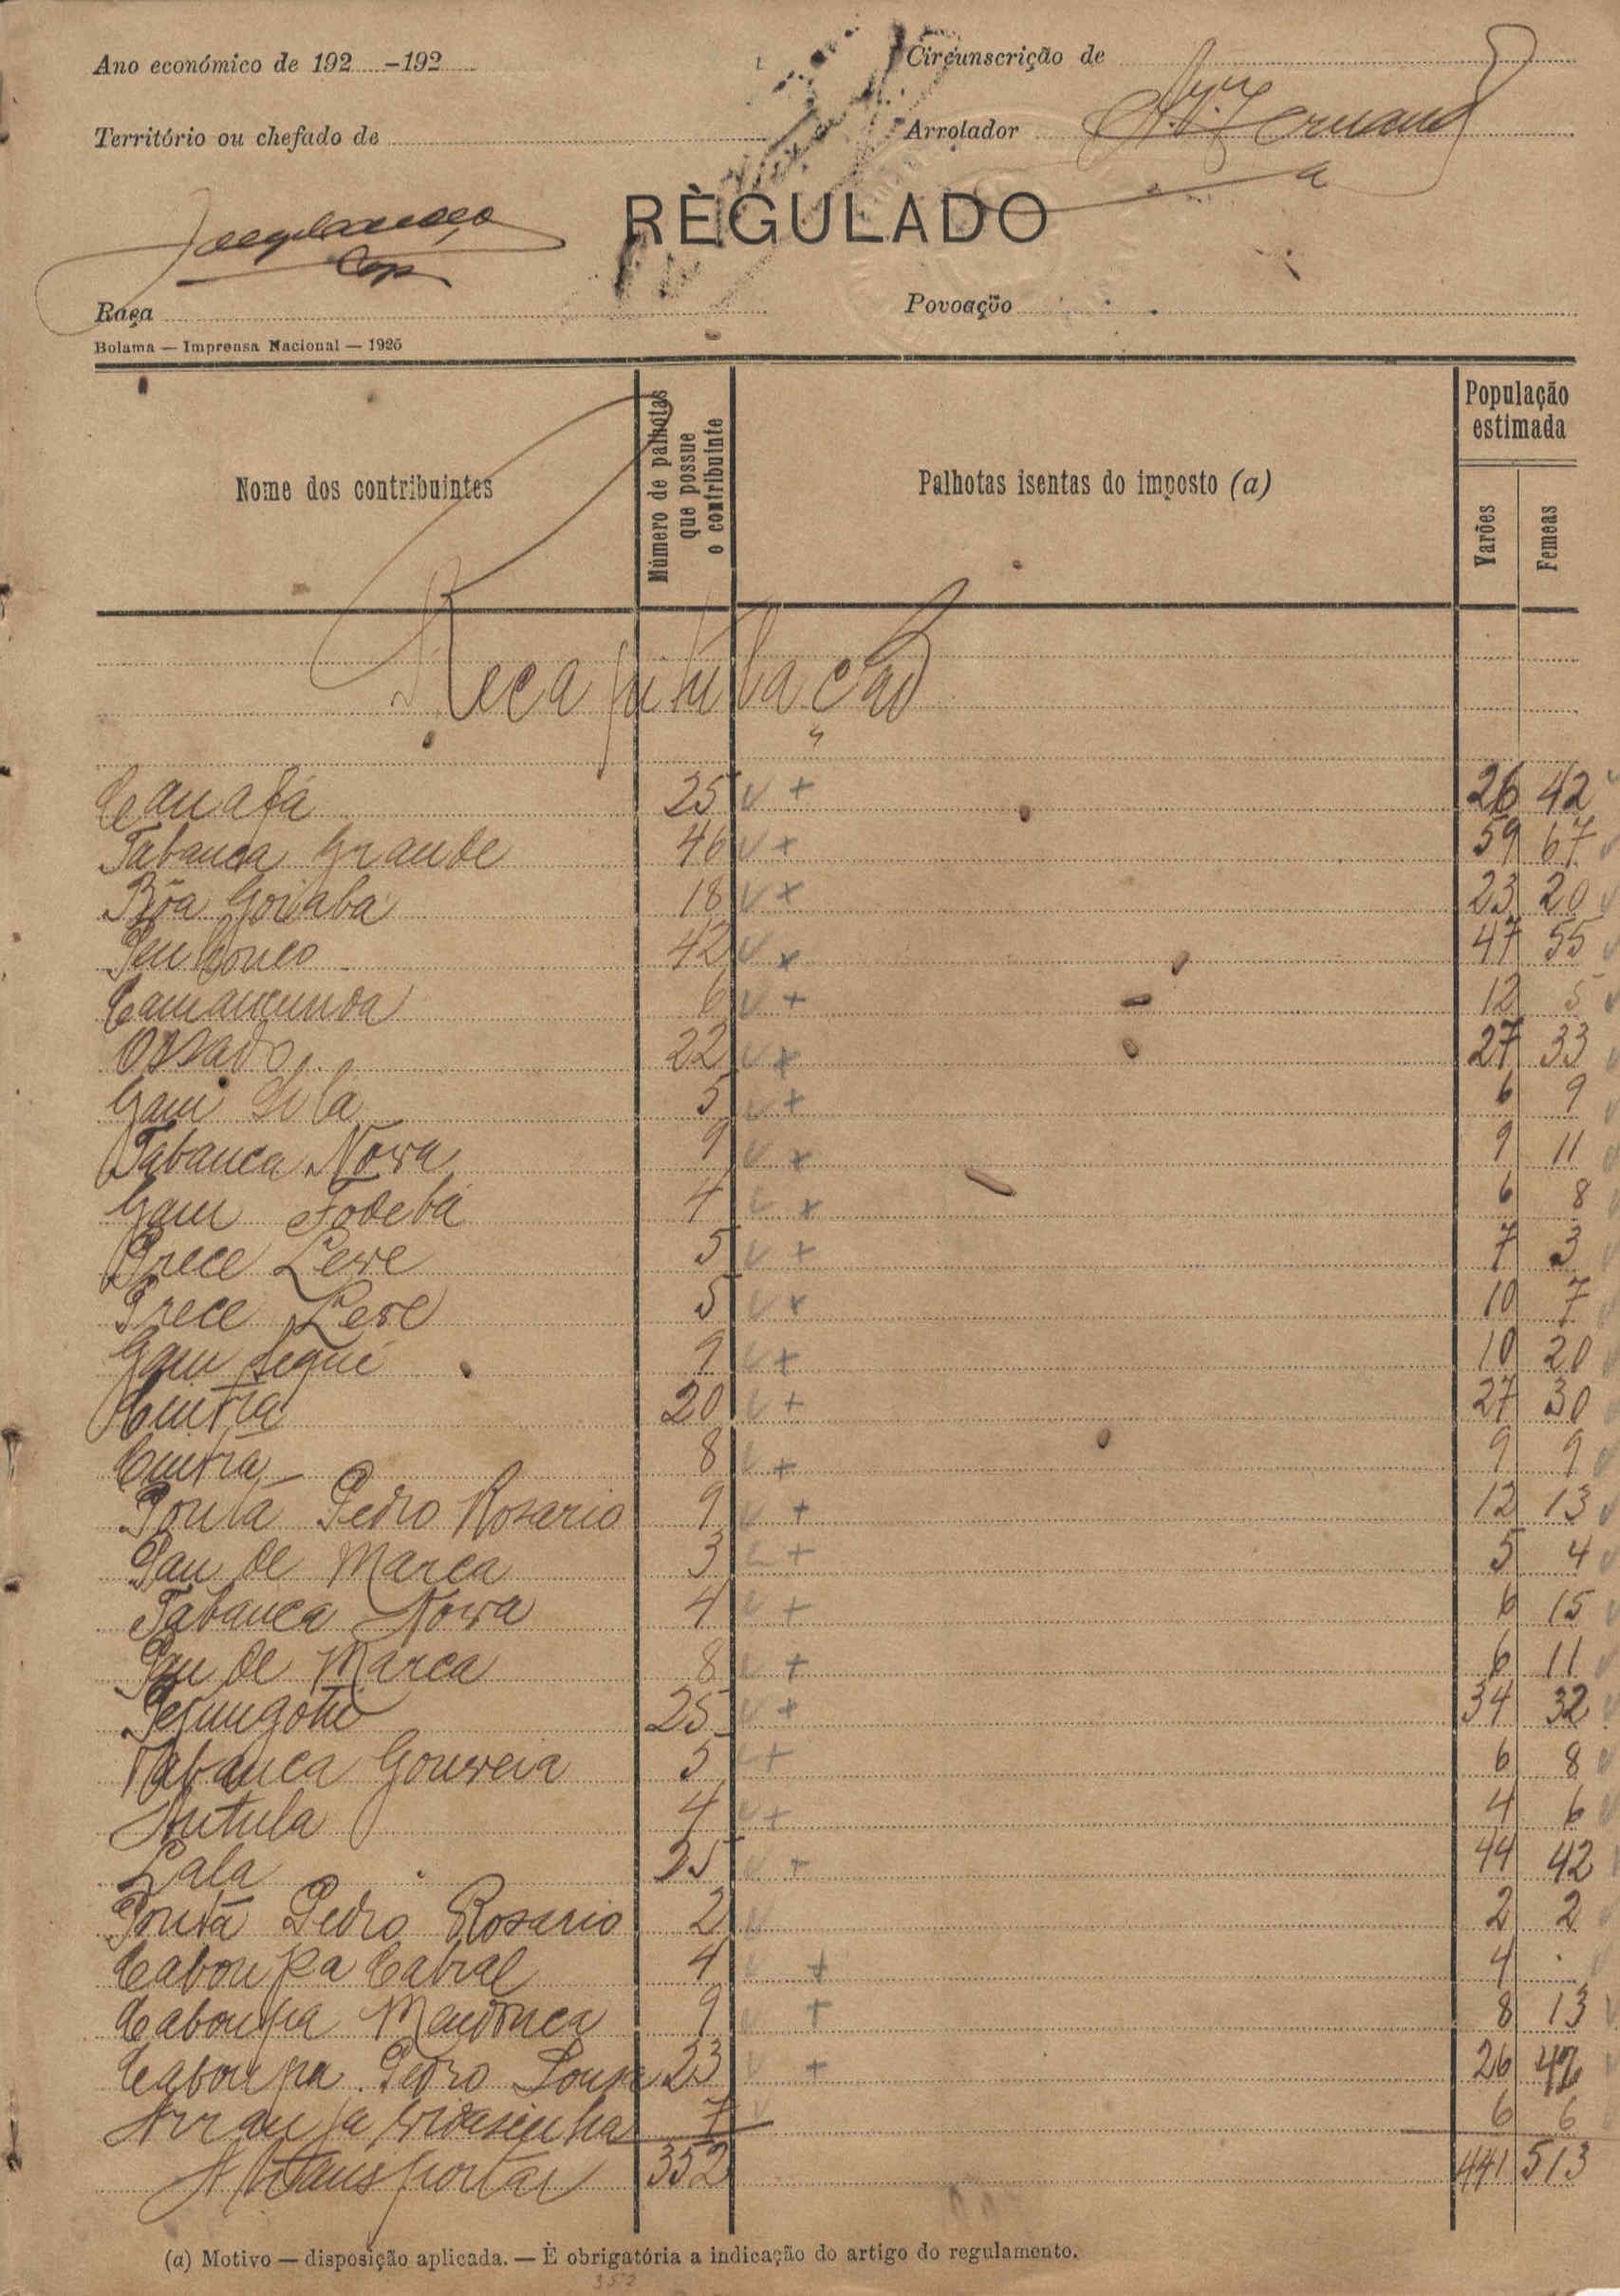 Ano económico de 192 -192
Circunscrição de
Território ou chefado de
Arrolador
RÈGULADO
Raça
Povoação
Bolama — Imprensa Nacional — 1925
Nome dos contribuintes
Número de palhotas que possue o contribuinte
Palhotas isentas do imposto (a)
População estimada
Varões
Femeas
Recapitulação
Canafá 25 v + 26 42
Tabanca Grande 46 v + 59 67 v
Bôa Goiaba 18 v + 23 20 v
42 v + 47 55 v
Camancunda 6 v + 12 5 v
Ossado 22 v + 27 33 v
Gam Sila 5 v + 6 9 v
Tabanca Nova 9 v + 9 11 v
Gam Fodebá 4 v + 6 8 v
Prece Leve 5 v + 7 3 v
Prece Leve 5 v + 10 7 v
Gam Segui 9 v + 10 20 v
Cuntia 20 v + 27 30 v
Cuntia 8 v + 9 9 v
Ponta Pedro Rosario 9 v + 12 13 v
Pau de Marca 3 v + 5 4 v
Tabanca Nova 4 v + 6 15 v
Pau de Marca 8 v + 6 11 v
25 v + 34 32
Tabanca Gouveia 5 v + 6 8 v
Antula 4 v + 4 6 v
Lala 25 v + 44 42
Ponta Pedro Rosario 2 v 2 2 v
Caboupa Cabral 4 v + 4 . v
Caboupa Mendonca 9 v + 8 13 v
Caboupa Pedro 23 v + 26 42
Arranja vidasinha 7 v 6 6
A Transportar 352 441 513
(a) Motivo — disposição aplicada. — È obrigatória a indicação do artigo do regulamento.
352